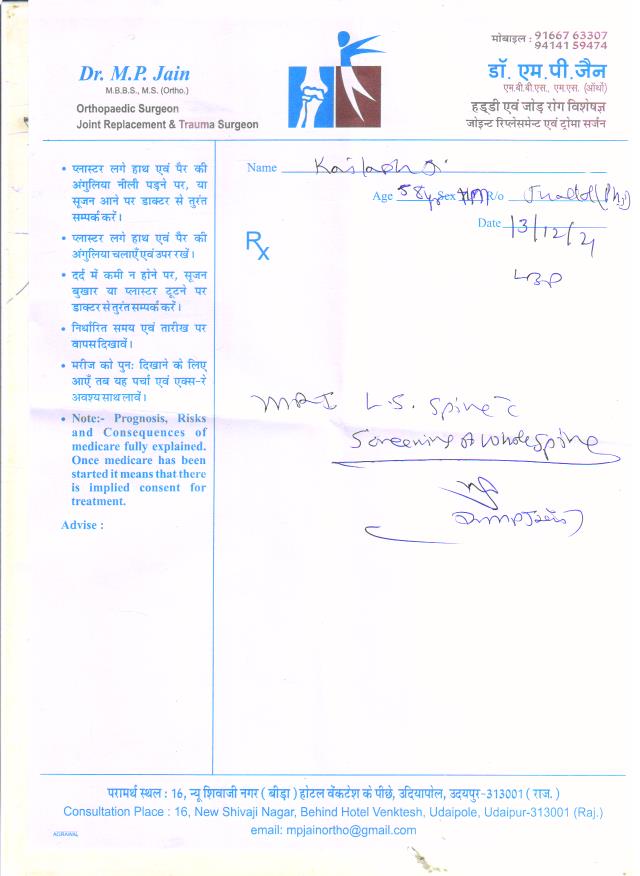 मोबाइल : 91667 63307
94141 59474
Dr. M.P. Jain
M.B.B.S., M.S. (Ortho.)
Orthopaedic Surgeon
Joint Replacement & Trauma Surgeon
डॉ. एम.पी.जैन
एम.बी.बी.एस., एम.एस. (ऑर्थो)
हड्डी एवं जोड़ रोग विशेषज्ञ
जोइन्ट रिप्लेसमेन्ट एवं ट्रोमा सर्जन
• प्लास्टर लगे हाथ एवं पैर की
अंगुलिया नीली पड़ने पर, या
सूजन आने पर डाक्टर से तुरंत
सम्पर्क करें।
• प्लास्टर लगे हाथ एवं पैर की
अंगुलिया चलाएँ एवं उपर रखें।
• दर्द में कमी न होने पर, सूजन
बुखार या प्लास्टर टूटने पर
डाक्टर से तुरंत सम्पर्क करें।
• निर्धारित समय एवं तारीख पर
वापस दिखावें।
• मरीज को पुनः दिखाने के लिए
आएँ तब यह पर्चा एवं एक्स-रे
अवश्य साथ लावें।
• Note:- Prognosis, Risks
and Consequences of
medicare fully explained.
Once medicare has been
started it means that there
is implied consent for
treatment.
Advise :
Name Kailash Ji
Age 58 yr Sex M R/o
Date 13/12/21
Rx
LBP
MRI L.S. Spine c̄
Screening of whole spine
(Dr MP Jain)
परामर्थ स्थल : 16, न्यू शिवाजी नगर ( बीड़ा ) होटल वेंकटेश के पीछे, उदियापोल, उदयपुर-313001 ( राज. )
Consultation Place : 16, New Shivaji Nagar, Behind Hotel Venktesh, Udaipole, Udaipur-313001 (Raj.)
email: mpjainortho@gmail.com
AGRAWAL